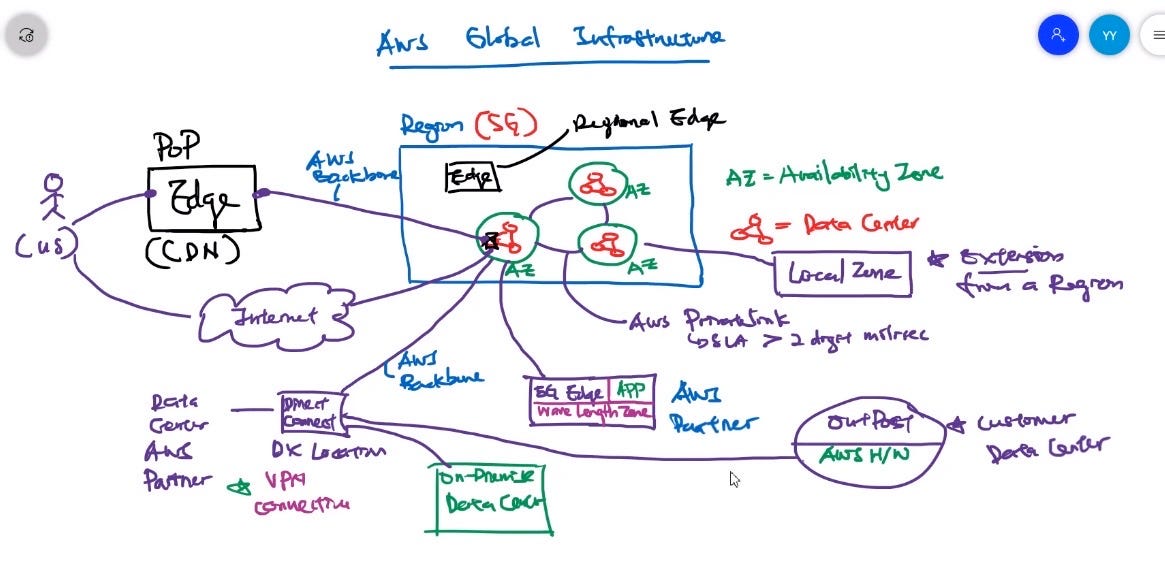 AWS Global Infrastructure
YY
Region (SG)
Regional Edge
PoP
Edge
(CDN)
AWS
Backbone
Edge
AZ
AZ
AZ
AZ = Availability Zone
= Data Center
(US)
Internet
Local Zone
* Extension
from a Region
AWS
SLA > 2 digit
AWS
Backbone
5G Edge
APP
Wave Length Zone
AWS
Partner
Data
Center
AWS
Partner
Direct
Connect
DX Location
VPN
Connection
On-Premise
Data Center
OutPost
AWS H/W
* Customer
Data Center